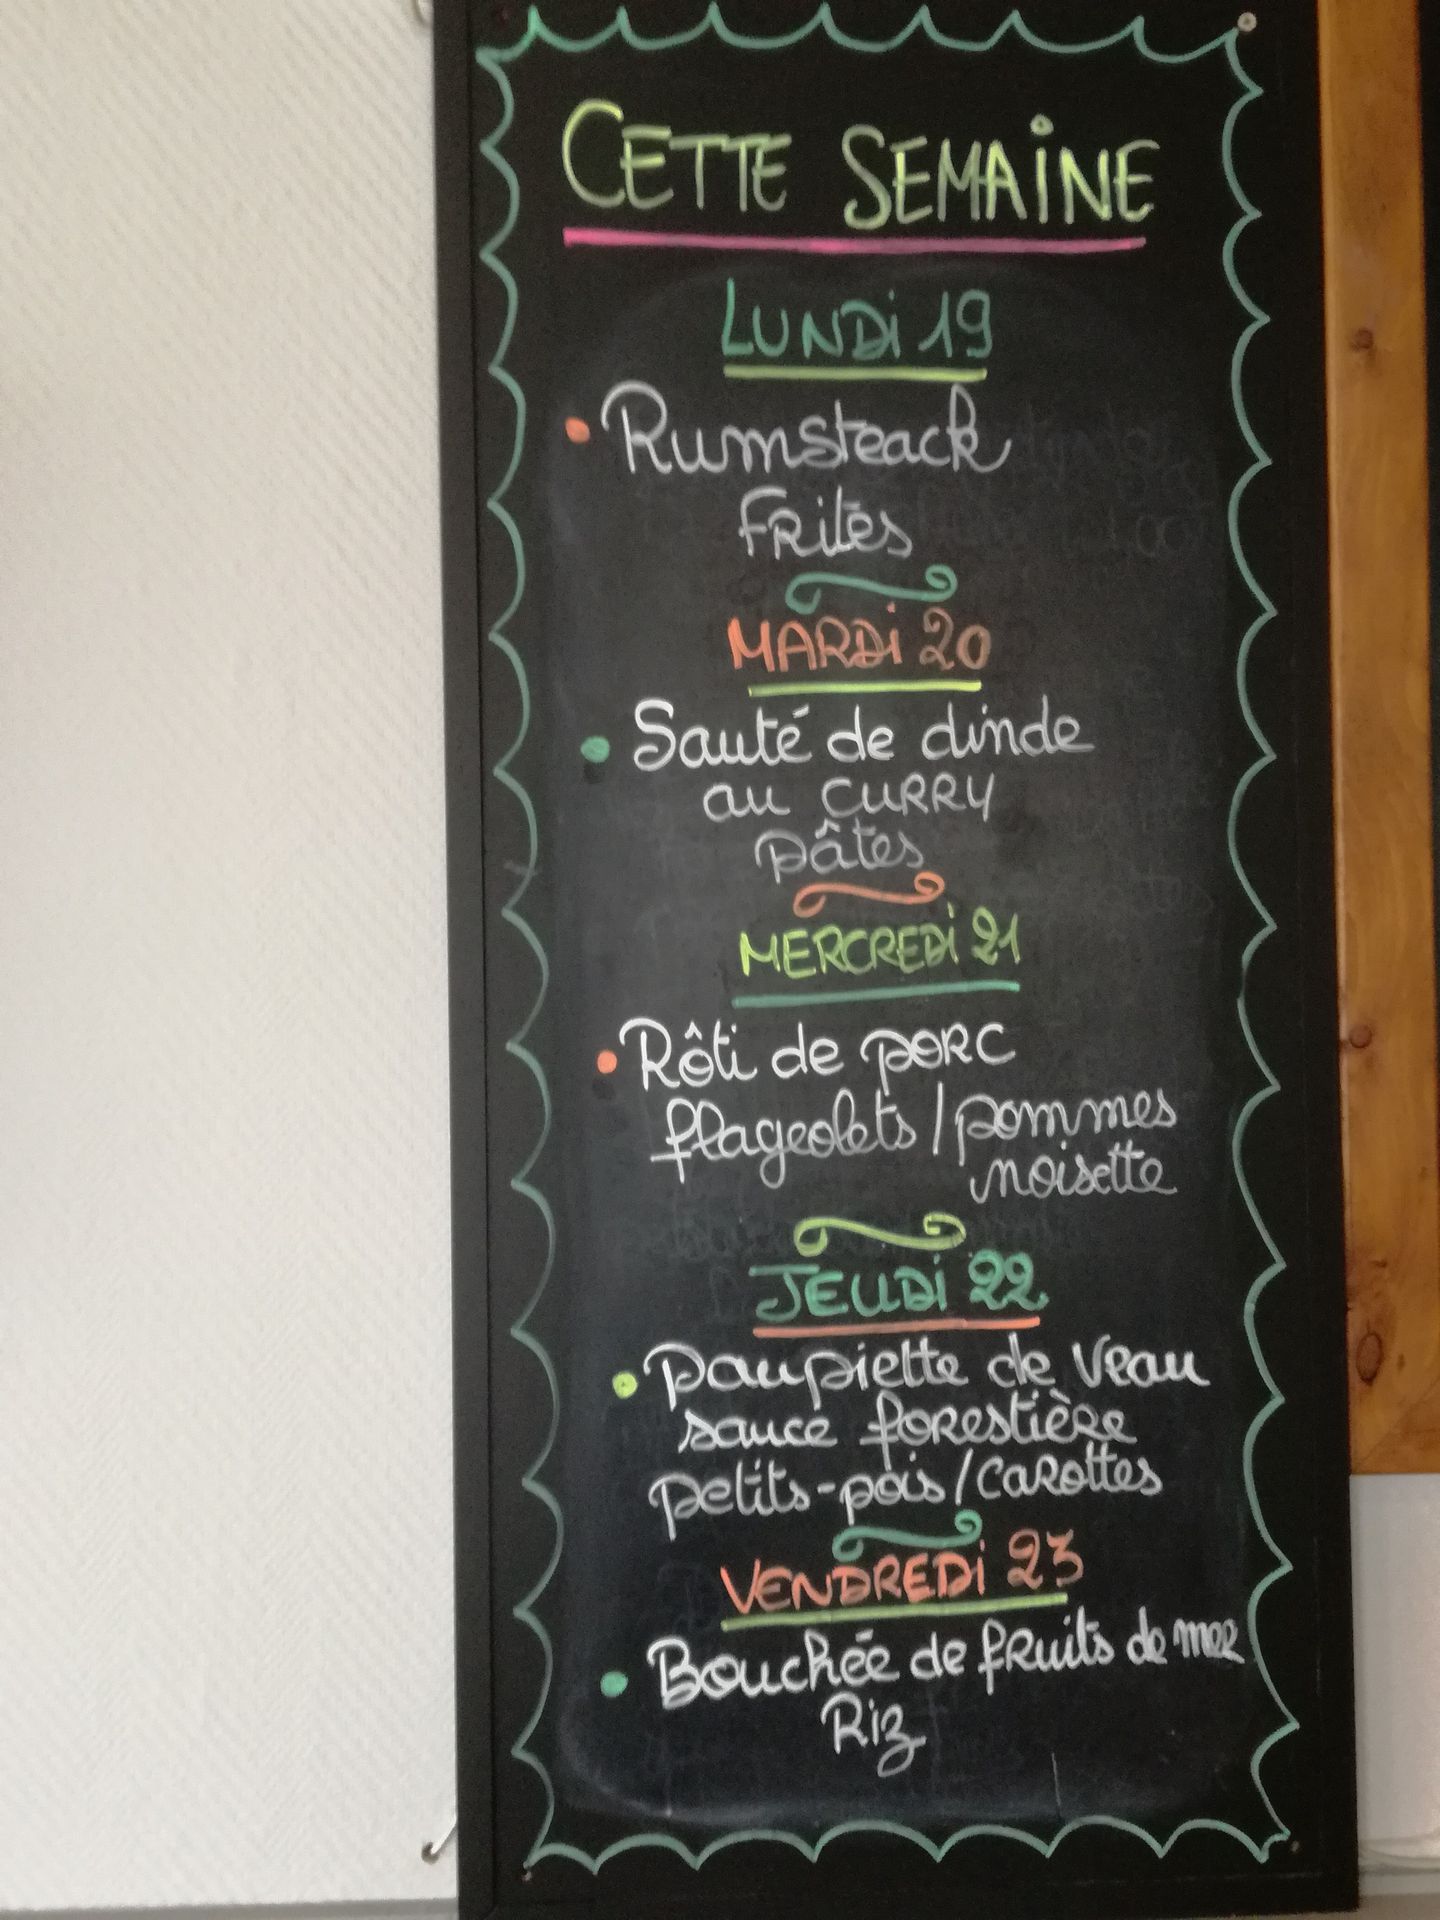 CETTE SEMAINE
LUNDI 19
• Rumsteack
Frites
MARDI 20
• Sauté de dinde
au CURRY
pâtes
MERCREDI 21
• Rôti de porc
flageolets / pommes
noisette
JEUDI 22
• Paupiette de veau
sauce forestière
petits-pois / carottes
VENDREDI 23
• Bouchée de fruits de mer
Riz